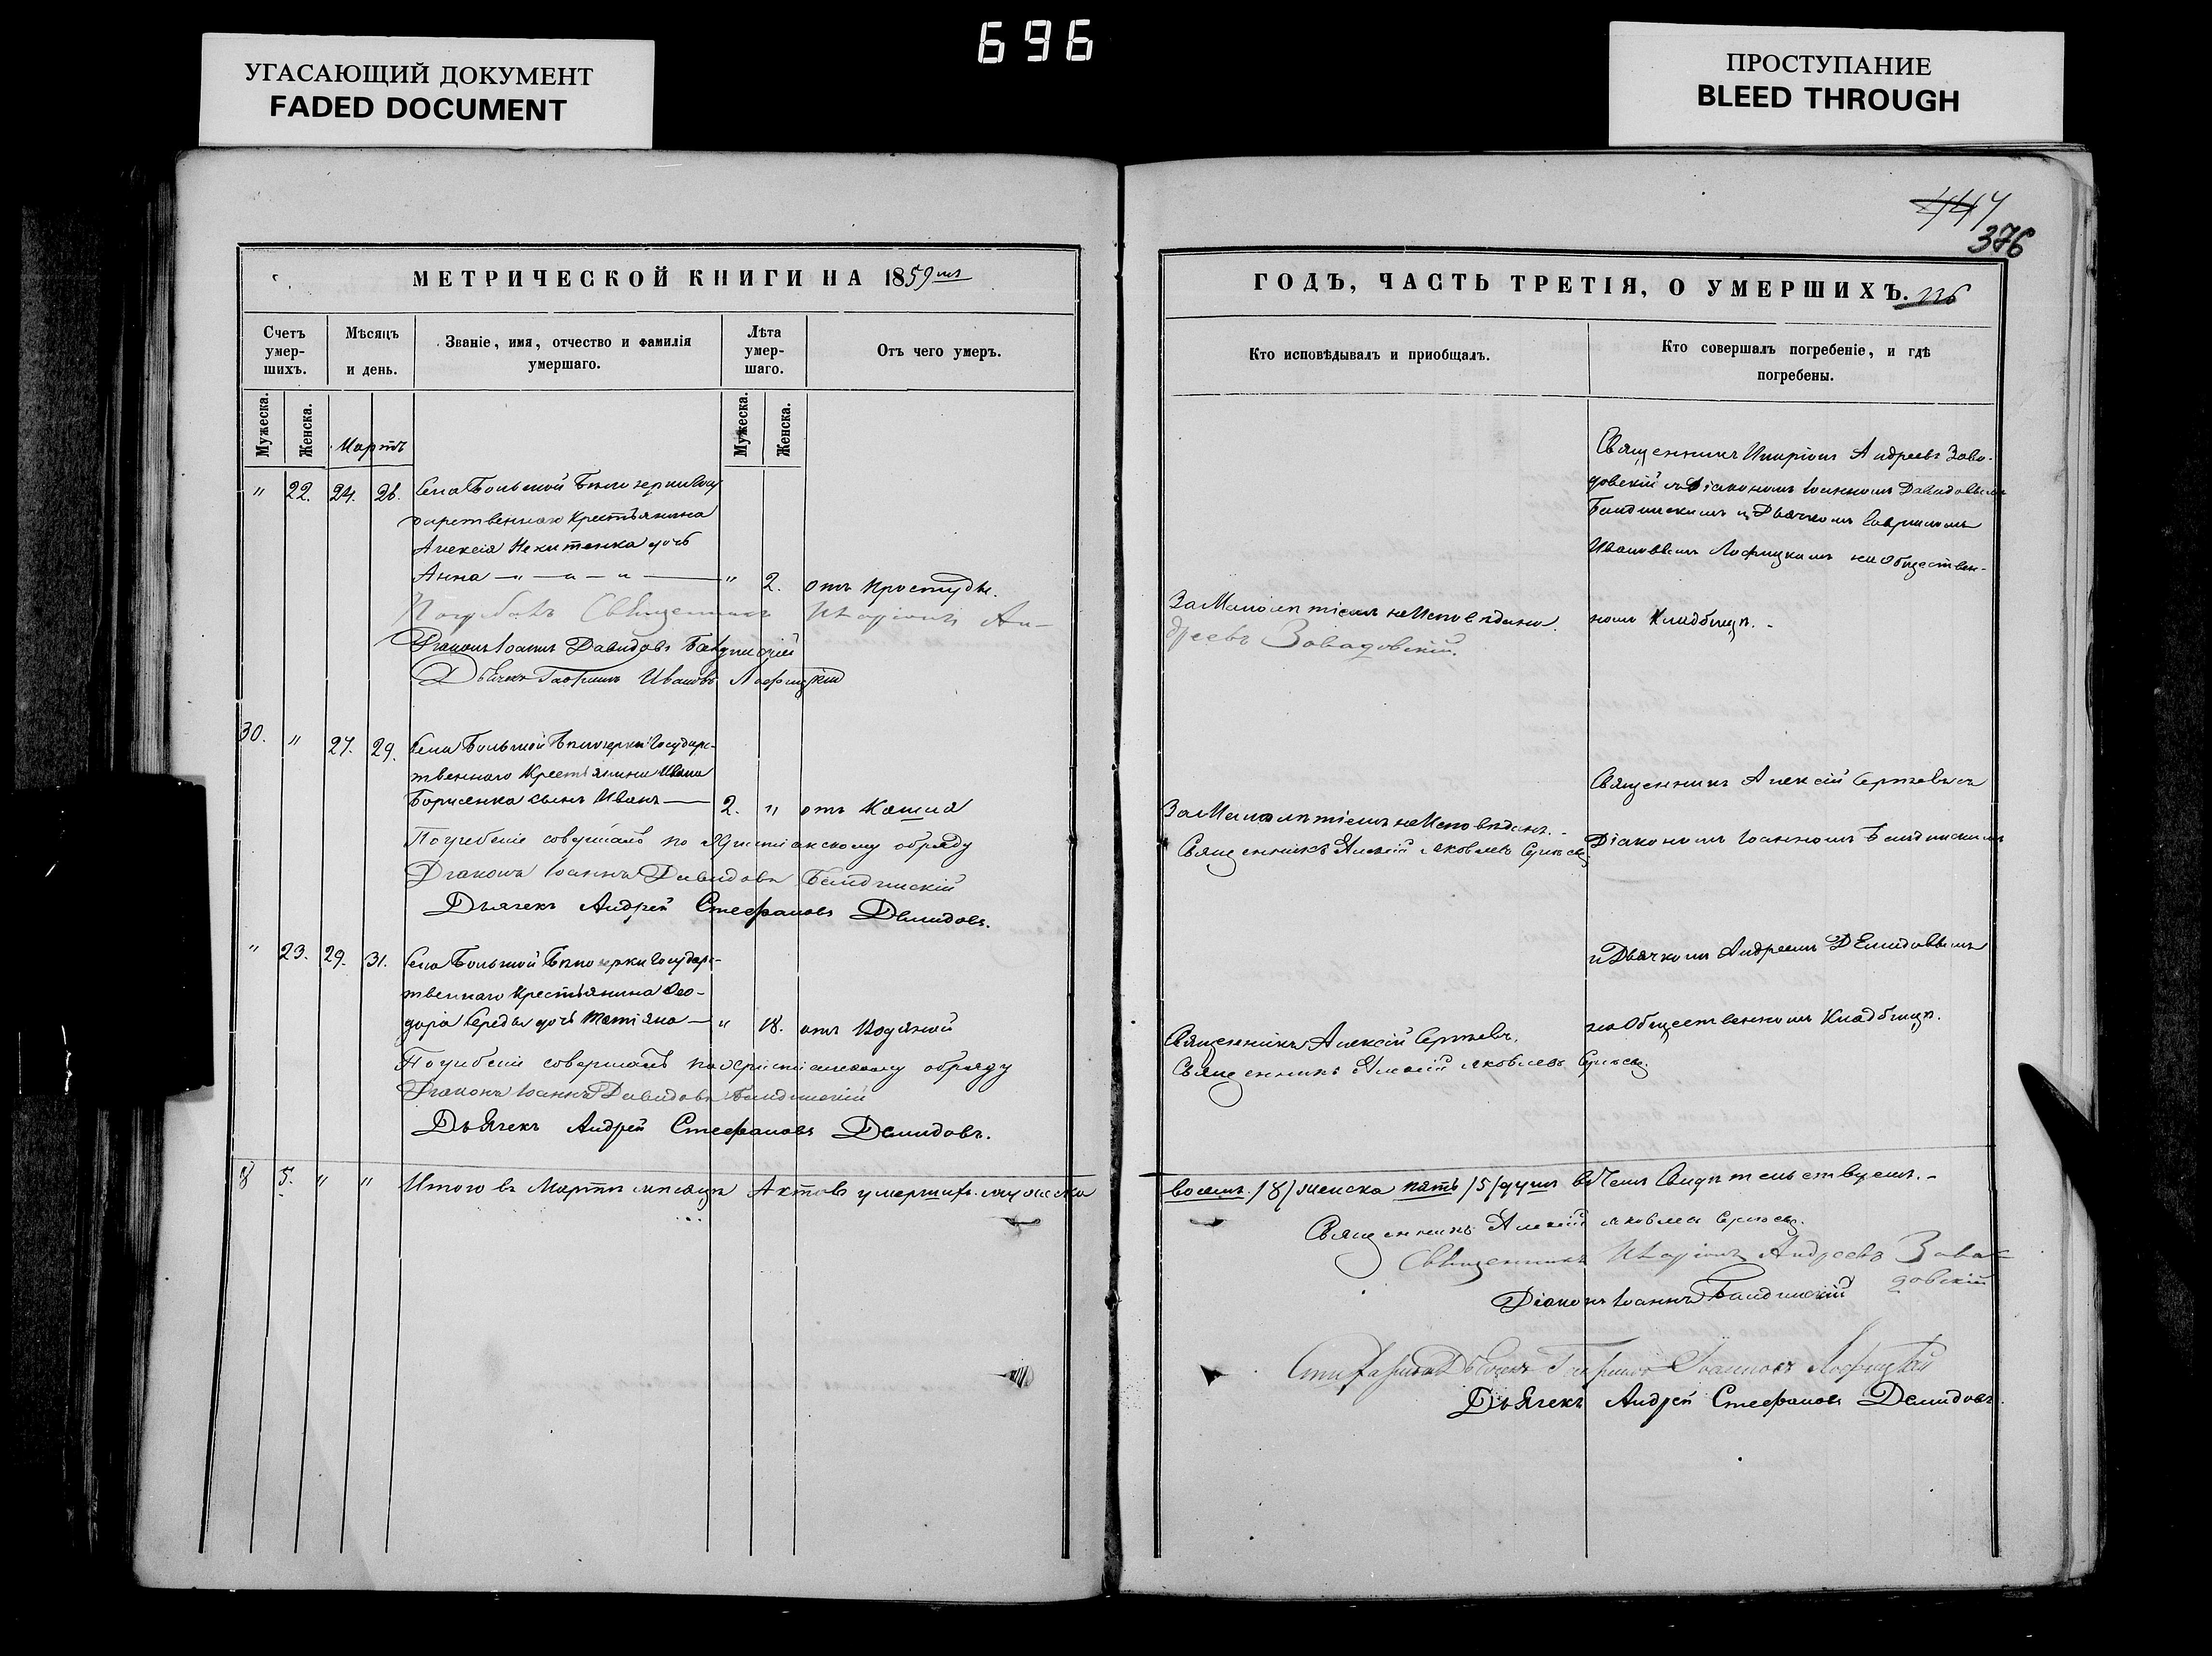 696
УГАСАЮЩИЙ ДОКУМЕНТ
FADED DOCUMENT
ПРОСТУПАНИЕ
BLEED THROUGH
376
МЕТРИЧЕСКОЙ КНИГИ НА 1859й
Счетъ умер-шихъ.
Мѣсяцъ и день.
Званіе, имя, отчество и фамилія умершаго.
Лѣта умер-шаго.
Отъ чего умеръ.
Мужеска.
Женска.
Мужеска.
Женска.
Мартъ
" 22. 24. 26. Села Большой Бѣлозерки Госу
дарственнаго Крестьянина
Алексія Никитенка дочь
Анна — " — " — " — " 2. отъ простуды.
Погребалъ Священникъ Иларіонъ Ан-
Діаконъ Іоаннъ Давидовъ
Дьячекъ Гавріилъ Ивановъ
30. " 27. 29. Села Большой Бѣлозерки Государс-
твеннаго Крестьянина Ивана
Борисенка сынъ Иванъ — 2. " отъ Кашля
Погребеніе совершалъ по христіанскому обряду
Діаконъ Іоаннъ Давидовъ
Дьячекъ Андрей Стефановъ Демидовъ.
" 23. 29. 31. Села Большой Бѣлозерки Государс-
твеннаго Крестьянина Ѳео-
дора Середы дочь Татіяна — " 18. отъ Водяной
Погребеніе совершалъ по христіанскому обряду
Діаконъ Іоаннъ Давидовъ
Дьячекъ Андрей Стефановъ Демидовъ.
8 5. " " Итого въ Мартѣ мѣсяцѣ Актовъ умершихъ мужеска
ГОДЪ, ЧАСТЬ ТРЕТІЯ, О УМЕРШИХЪ.
Кто исповѣдывалъ и приобщалъ.
Кто совершалъ погребеніе, и гдѣ погребены.
Священникъ Иларіонъ Андреевъ Зава-
довскій съ Діакономъ Іоанномъ Давидовымъ
и Дьячкомъ Гавріиломъ
Ивановымъ на Обществен-
За Малолѣтіемъ не Исповѣдана. номъ Кладбищѣ.
дреевъ Завадовскій.
Священникъ Алексій Сергѣевъ съ
За Малолѣтіемъ не Исповѣданъ.
Священникъ Алексій Яковлевъ
Діакономъ Іоанномъ
и Дьячкомъ Андреемъ Демидовымъ
на Общественномъ Кладбищѣ.
Священникъ Алексій Сергѣевъ.
Священникъ Алексій Яковлевъ
восемъ /8/ женска пять /5/ душъ въ Чемъ Свидѣтельствуемъ.
Священникъ Алексій Яковлевъ
Священникъ Иларіонъ Андреевъ Зава-
довскій
Діаконъ Іоаннъ
Дьячекъ Андрей Стефановъ Демидовъ.